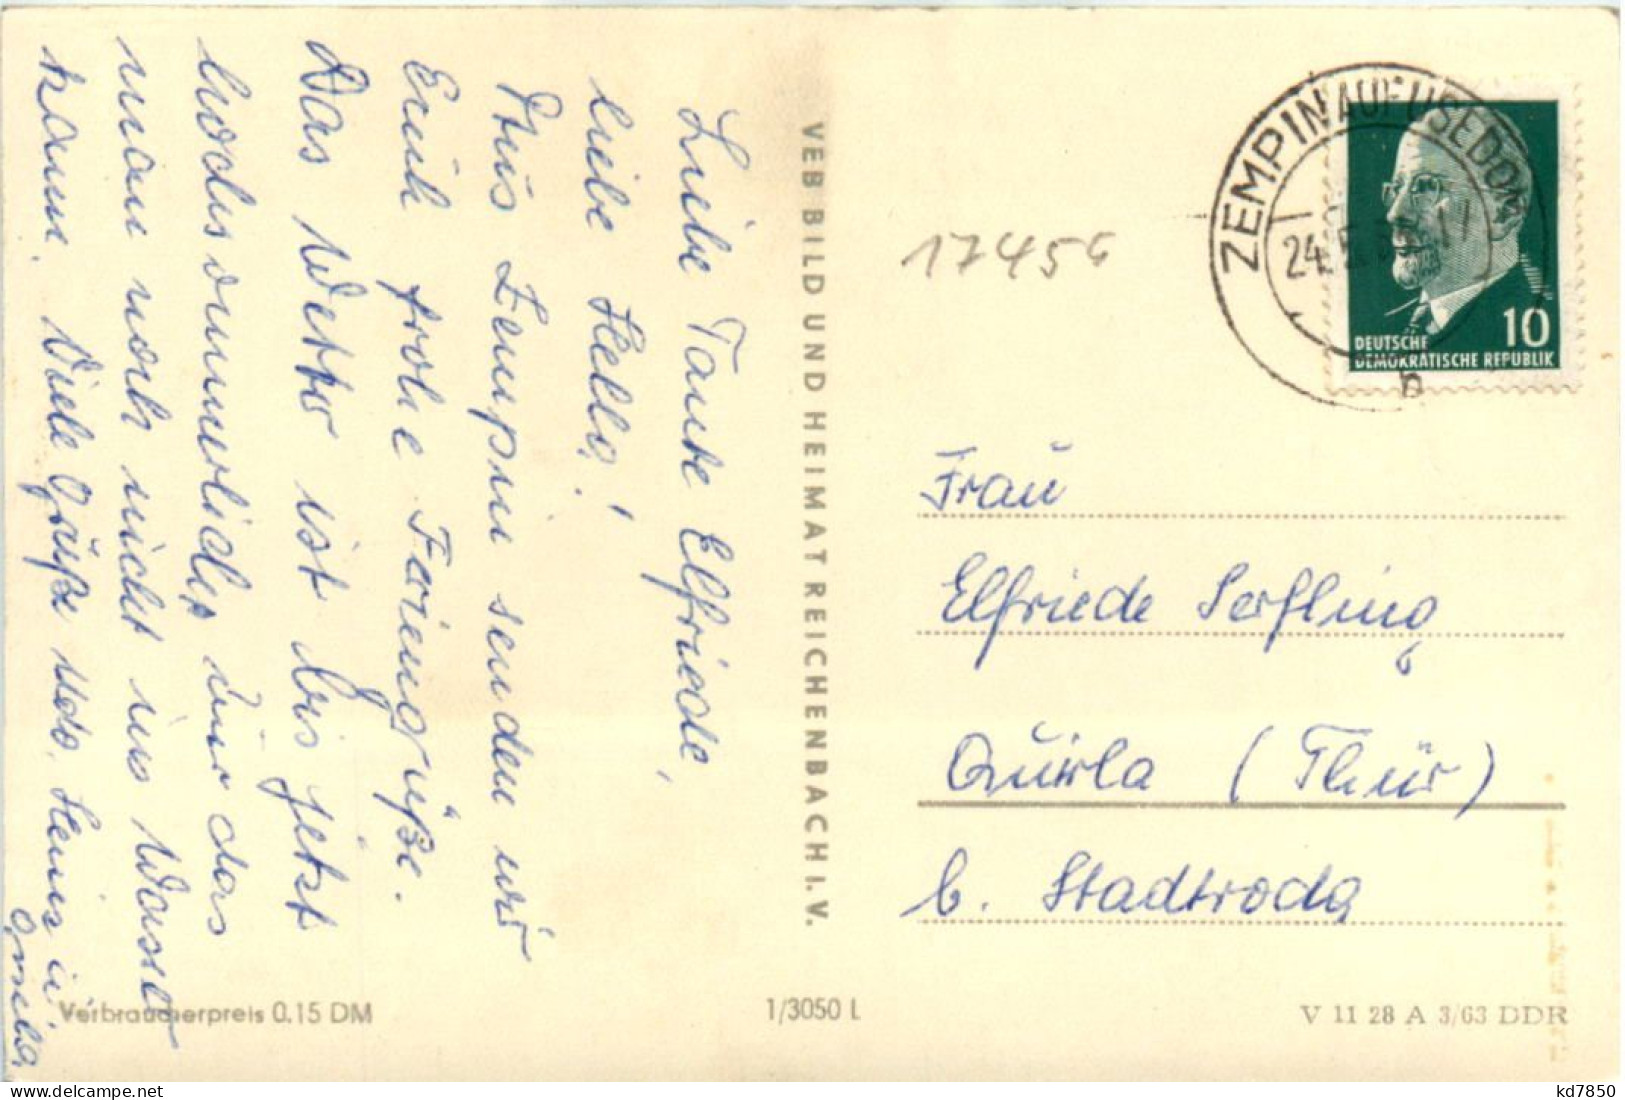 Liebe Tante Elfriede,
liebe Hella!
Aus Zempin senden wir
Euch frohe Feriengrüße.
Das Wetter ist bis jetzt
hochsommerlich, nur das
man noch nicht ins Wasser
kann. Viele Grüße udo. Heinz u.
VEB BILD UND HEIMAT REICHENBACH I. V.
17456
ZEMPIN AUF USEDOM
24.5.
b
10
DEUTSCHE
DEMOKRATISCHE REPUBLIK
Frau
Elfriede Serfling
Quirla (Thür)
b. Stadtroda
Verbraucherpreis 0.15 DM
1/3050 L
V 11 28 A 3/63 DDR
kd7850